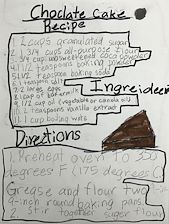 Choclate Cake
Recipe
2 cups granulated sugar
1 3/4 cup all-purpose flour
3/4 cup unsweetened cocoa powder
1 1/2 teaspoons baking powder
1 1/2 teaspoons baking soda
1 teaspoon salt
2 large eggs
1 cup of milk
1/2 cup oil (vegetable or canola oil)
2 teaspoons vanilla extract
1 cup boiling water
Ingreideen
Directions
1. Preheat oven to 350
degrees F (175 degrees C).
Grease and flour two
9-inch round baking pans.
2. Stir together sugar flour